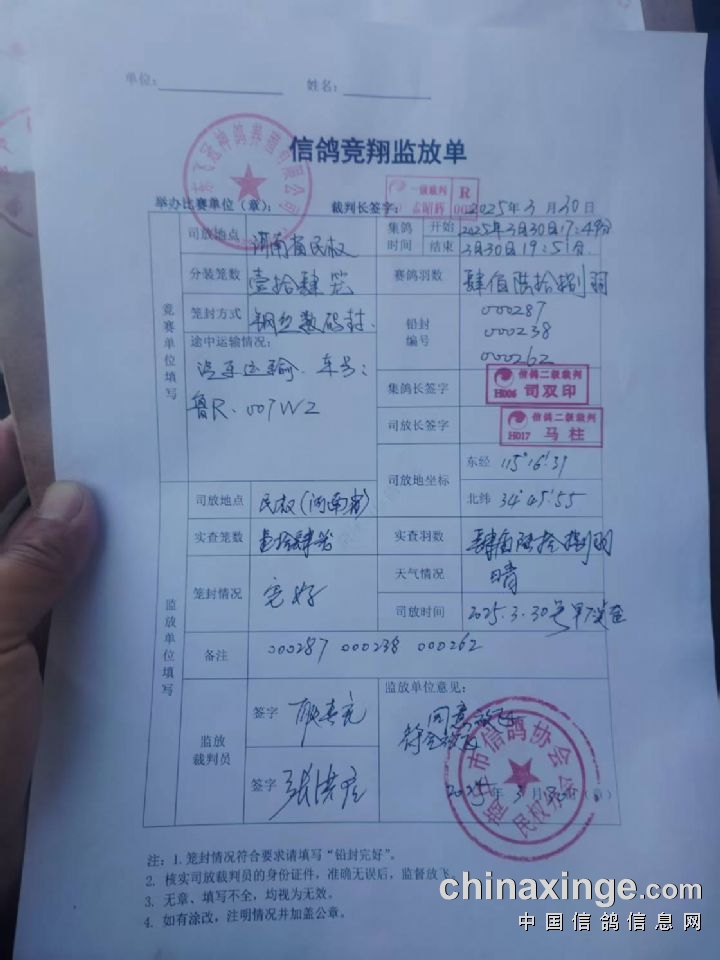 单位：
姓名：
信鸽竞翔监放单
举办比赛单位（章）：
裁判长签字：
一级裁判 R
2025年3月30日
竞赛单位填写
司放地点 河南省民权
集鸽时间 开始 2025年3月30日17:49分
结束 3月30日19:51分
分装笼数 壹拾肆笼
赛鸽羽数 肆佰陆拾捌羽
笼封方式 钢丝数码封
铅封编号 000287
000238
000262
途中运输情况：
汽车运输、车号：
鲁R·007W2
集鸽长签字 信鸽二级裁判
H006 司双印
司放长签字 信鸽二级裁判
H017 马柱
司放地坐标 东经 115°16′31
北纬 34°45′55
监放单位填写
司放地点 民权(河南省)
实查笼数 壹拾肆笼
实查羽数 肆佰陆拾捌羽
笼封情况 完好
天气情况 晴
司放时间 2025.3.30号
备注 000287 000238 000262
监放裁判员
签字
签字
监放单位意见：
同意放飞
符合放飞
市信鸽协会
民权
2025年3月30日（章）
注：1. 笼封情况符合要求请填写“铅封完好”。
2. 核实司放裁判员的身份证件，准确无误后，监督放飞。
3. 无章、填写不全，均视为无效。
4. 如有涂改，注明情况并加盖公章。
chinaxinge.com
中国信鸽信息网